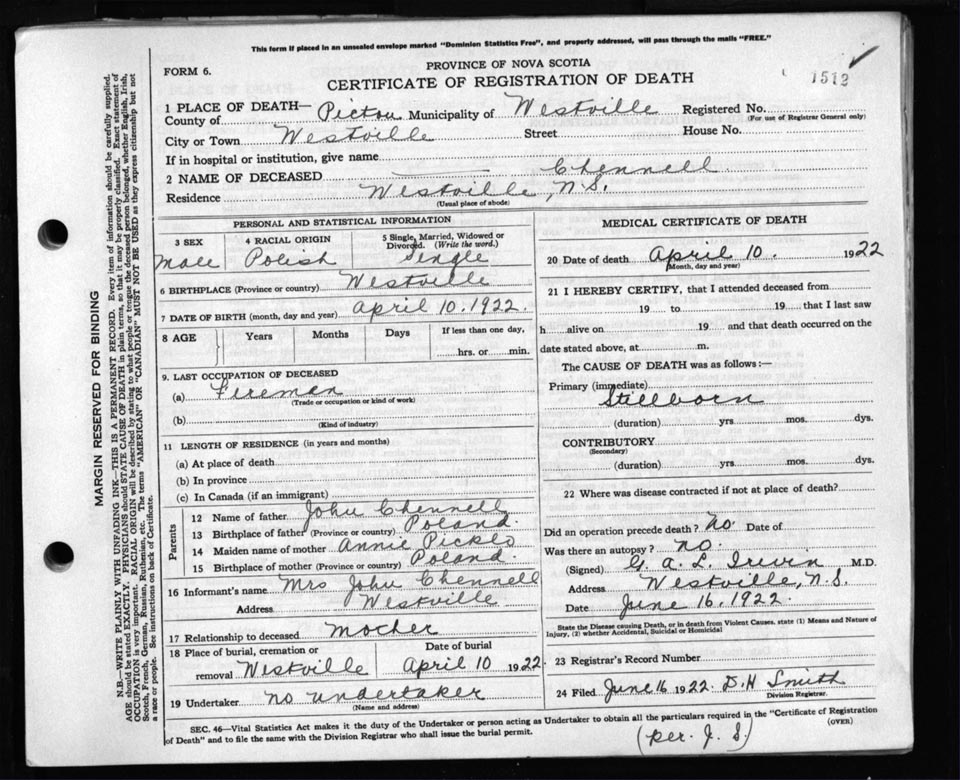 This form if placed in an unsealed envelope marked "Dominion Statistics Free", and properly addressed, will pass through the mails "FREE."
PROVINCE OF NOVA SCOTIA
FORM 6.
CERTIFICATE OF REGISTRATION OF DEATH
1512
1 PLACE OF DEATH—
County of Pictou Municipality of Westville Registered No.
(For use of Registrar General only)
City or Town Westville Street House No.
If in hospital or institution, give name
2 NAME OF DECEASED Chennell
Residence Westville, N.S.
(Usual place of abode)
PERSONAL AND STATISTICAL INFORMATION
3 SEX 4 RACIAL ORIGIN 5 Single, Married, Widowed or Divorced. (Write the word.)
Male Polish Single
6 BIRTHPLACE (Province or country) Westville
7 DATE OF BIRTH (month, day and year) April 10. 1922.
8 AGE Years Months Days If less than one day,
hrs. or min.
9. LAST OCCUPATION OF DECEASED
(a) Fireman
(Trade or occupation or kind of work)
(b)
(Kind of industry)
11 LENGTH OF RESIDENCE (in years and months)
(a) At place of death
(b) In province
(c) In Canada (if an immigrant)
Parents
12 Name of father John Chennell
13 Birthplace of father (Province or country) Poland.
14 Maiden name of mother Annie Picklo
15 Birthplace of mother (Province or country) Poland
16 Informant's name Mrs John Chennell
Address Westville
17 Relationship to deceased Mother
18 Place of burial, cremation or removal Westville Date of burial April 10 1922.
19 Undertaker no undertaker
(Name and address)
MEDICAL CERTIFICATE OF DEATH
20 Date of death April 10. 1922
(Month, day and year)
21 I HEREBY CERTIFY, that I attended deceased from
19 to 19 that I last saw
h alive on 19 and that death occurred on the
date stated above, at m.
The CAUSE OF DEATH was as follows:—
Primary (immediate)
Stillborn
(duration) yrs. mos. dys.
CONTRIBUTORY
(Secondary)
(duration) yrs. mos. dys.
22 Where was disease contracted if not at place of death?
Did an operation precede death? no Date of
Was there an autopsy? no.
(Signed) G. A. L. Irvin M.D.
Address Westville, N.S.
Date June 16. 1922.
State the Disease causing Death, or in death from Violent Causes, state (1) Means and Nature of
Injury, (2) whether Accidental, Suicidal or Homicidal
23 Registrar's Record Number
24 Filed June 16 1922. D. H Smith
Division Registrar.
SEC. 46—Vital Statistics Act makes it the duty of the Undertaker or person acting as Undertaker to obtain all the particulars required in the "Certificate of Registration
of Death" and to file the same with the Division Registrar who shall issue the burial permit.
(OVER)
(per. J. S.)
MARGIN RESERVED FOR BINDING
N.B.—WRITE PLAINLY WITH UNFADING INK—THIS IS A PERMANENT RECORD. Every item of information should be carefully supplied.
AGE should be stated EXACTLY. PHYSICIANS should STATE CAUSE OF DEATH in plain terms, so that it may be properly classified. Exact statement of
OCCUPATION is very important. RACIAL ORIGIN will be described by stating to what people or tongue the deceased person belonged, whether English, Irish,
Scotch, French, German, Russian, Ruthenian, etc. The terms "AMERICAN" OR "CANADIAN" MUST NOT BE USED as they express citizenship but not
a race or people. See instructions on back of Certificate.